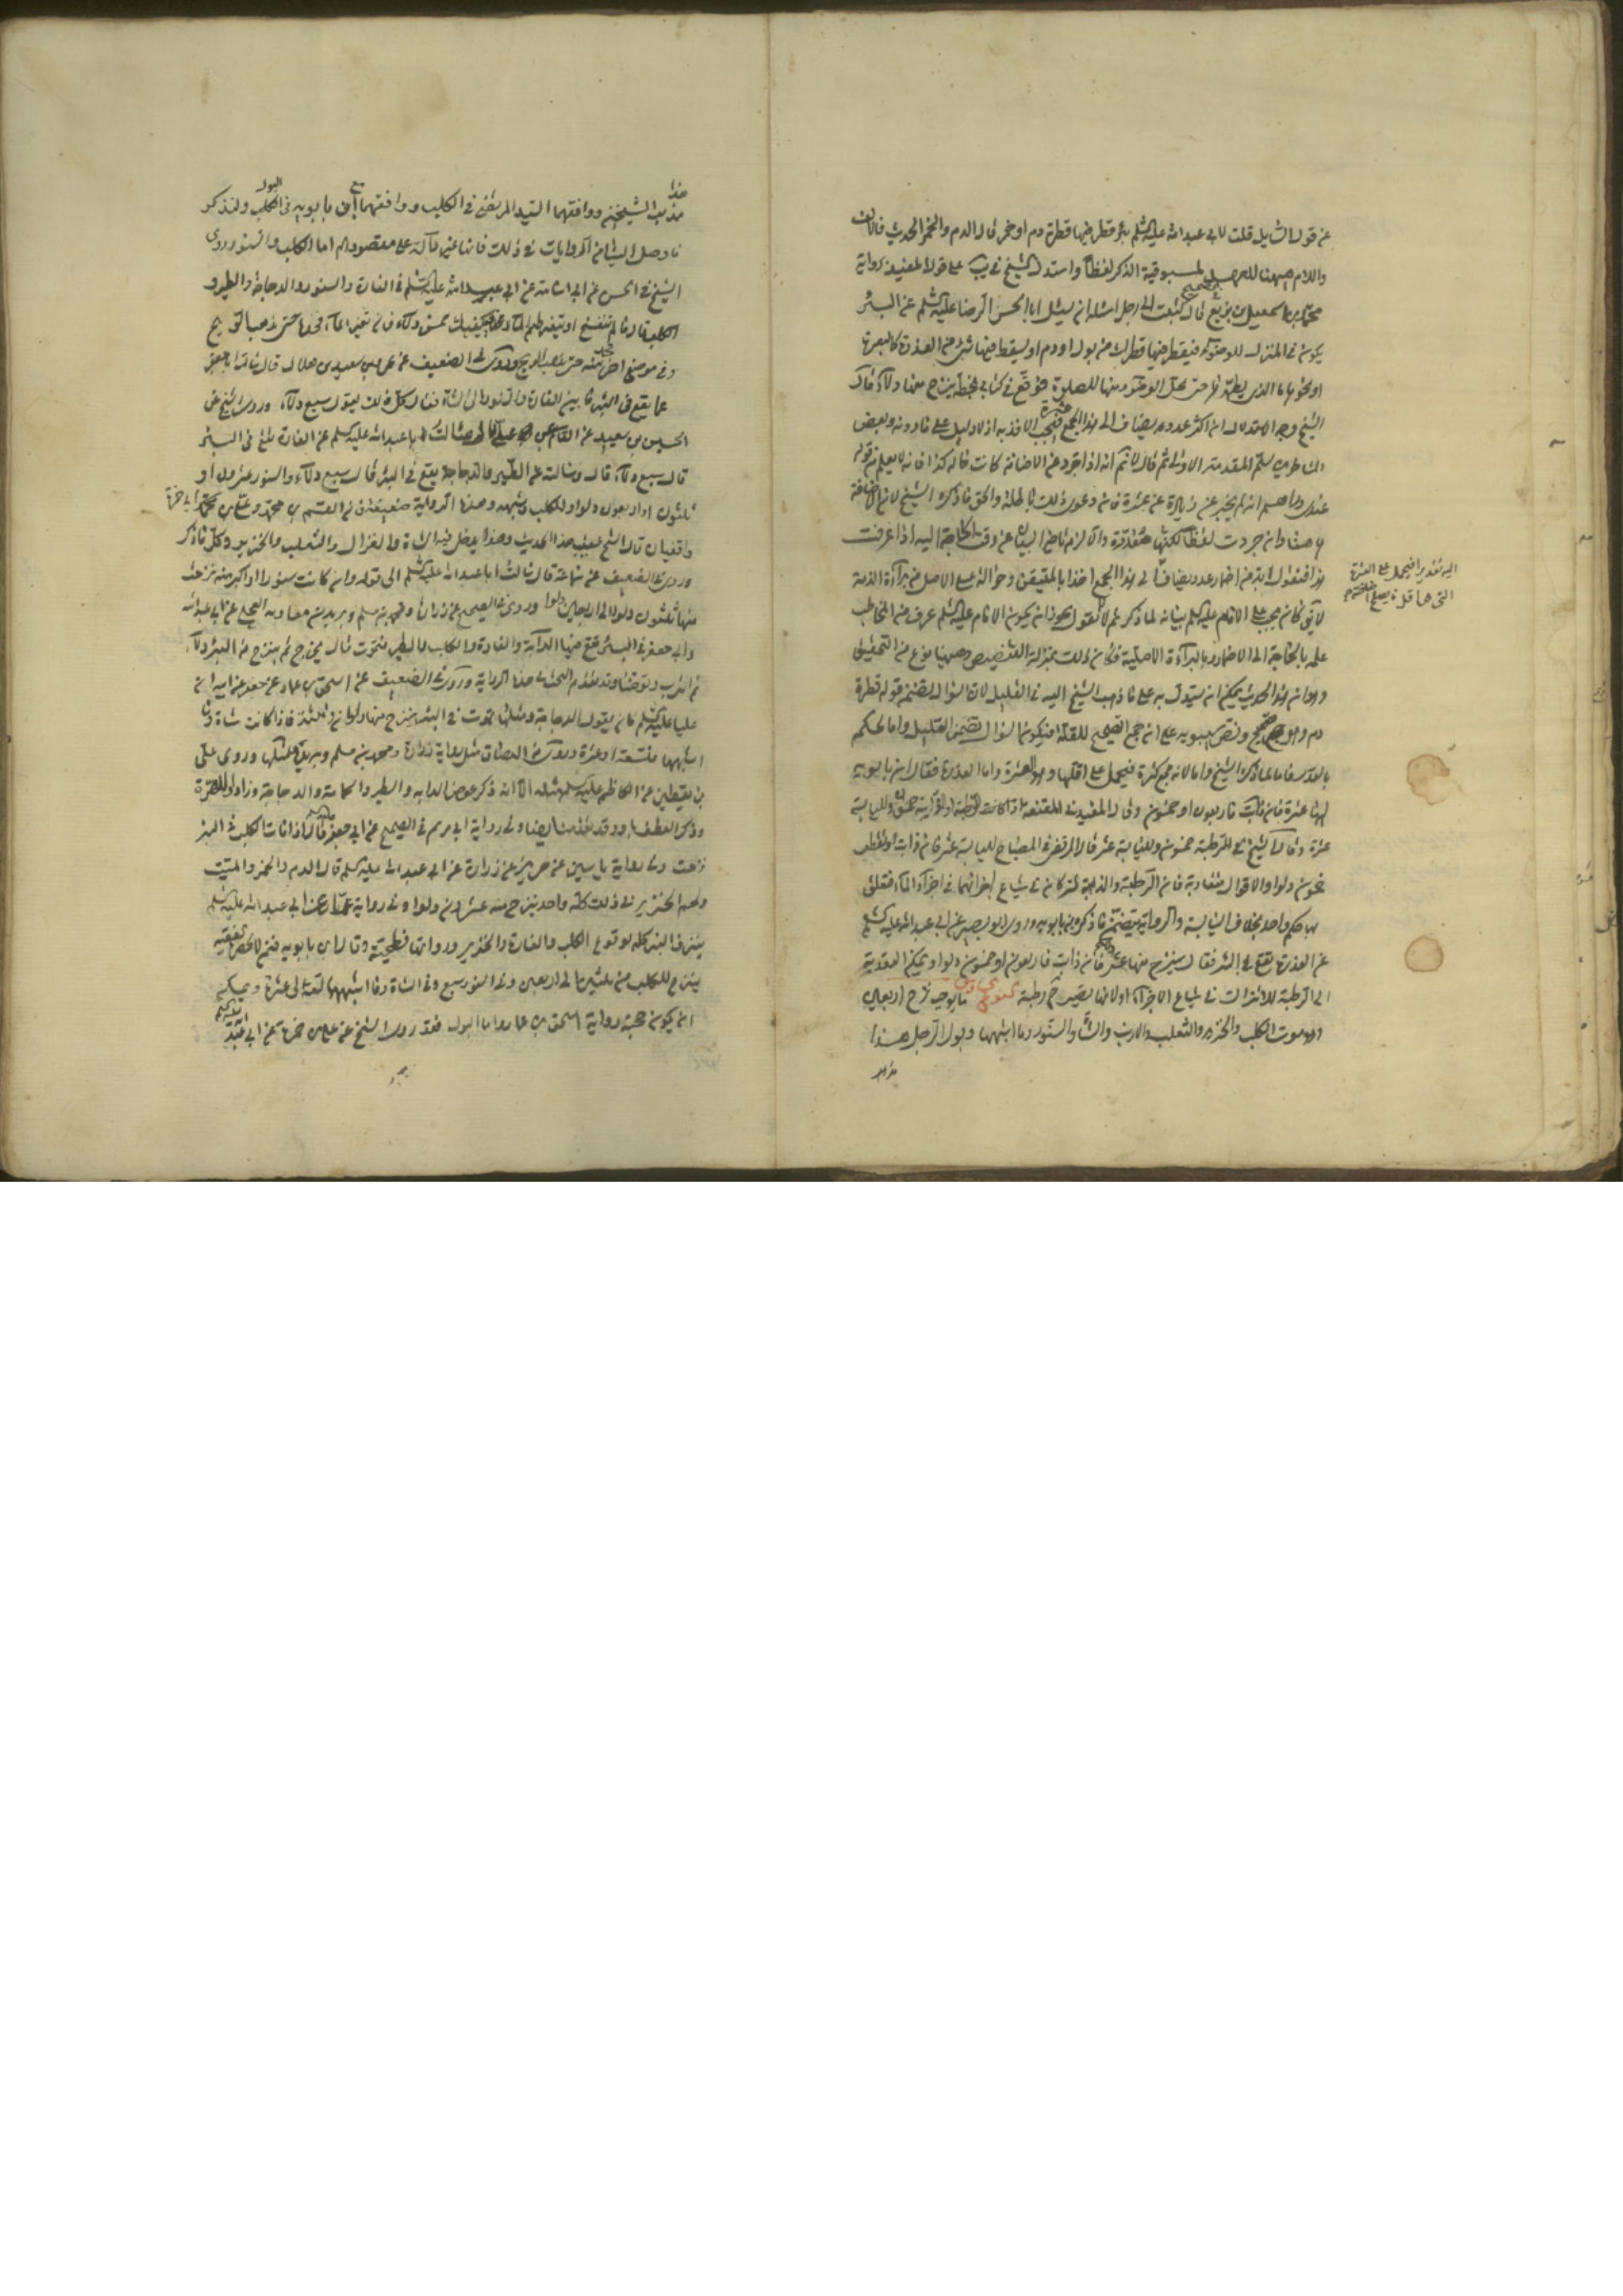 عن قول السائل قلت لابي عبد الله عليه السلم بئر قطر فيها قطرة دم او خمر قال الدم والخمر الحديث فالالف
واللام ههنا للعهد لمسبوقية الذكر لفظا واستدل الشيخ في يب على قول المفيد برواية
محمد بن اسمعيل بن بزيع قال كتبت الى رجل اسئله ان يسئل ابا الحسن الرضا عليه السلم عن البئر
يكون في المنزل للوضوء فيقطر فيها قطرات من بول او دم او يسقط فيها شئ من العذرة كالبعرة
او نحوها ما الذي يطهرها حتى يحل الوضوء منها للصلوة فوقع في كتابي بخطه ينزح منها دلاء قال
الشيخ وجه الاستدلال ان اكثر عدد يضاف الى هذا الجمع عشرة فيجب الاخذ به اذ لا دليل على ما دونه وبعض
المتاخرين سلم المقدمة الاولى ثم قال لا نم انه اذا جرد عن الاضافة كانت حاله كذا فانه لا يعلم من قوله
عندي دراهم انه لم يخبر عن زيادة عن عشرة فان دعوى ذلك باطلة والحق ما ذكره الشيخ لان الاضافة
ههنا وان جردت لفظا لكنها مقدرة والا لزم تاخير البيان عن وقت الحاجة اليه اذا عرفت
هذا فنقول لا بد من اضمار عدد يضاف الى هذا الجمع اخذا بالمتيقن وحوالة على الاصل من براءة الذمة
اليه تقديرا فيحمل على العشرة
التي هي اقل ما يصلح اضافته
لا يق كان يجب على الامام عليه السلم بيانه لما ذكرتم لانا نقول يجوز ان يكون الامام عليه السلم عرف من المخاطب
علمه بالحاجة الى الاضمار وبالبراءة الاصلية فكان ذلك بمنزلة التنصيص وههنا نوع من التحقيق
وهو ان هذا الحديث يمكن ان يستدل به على ما ذهب الشيخ اليه في القليل لان السؤال تضمن قوله قطرة
دم وهو جمع صحيح ونص سيبويه على ان جمع الصحيح للقلة فيكون السؤال تضمن القليل واما الحكم
بالعشر فاما لما ذكره الشيخ واما لانه جمع كثرة فيحمل على اقلها وهو العشرة واما العذرة فقال ابن بابويه
لها عشرة فان ذابت فاربعون او خمسون وقال المفيد في المقنعة اذا كانت رطبة او ذائبة خمسون ولليابسة
عشرة وقال الشيخ في الرطبة خمسون ولليابسة عشر قال المرتضى في المصباح لليابسة عشر فان ذابت وتقطعت
خمسون دلوا والاقوال متقاربة فان الرطبة والذائبة تشتركان في شياع اجزائهما في اجزاء الماء فتعلق
بهما حكم واحد بخلاف اليابسة والرواية تتضمن ما ذكره ابن بابويه وروى ابو بصير عن ابي عبد الله عليه السلم
عن العذرة تقع في البئر فقال ينزح منها عشر دلاء فان ذابت فاربعون او خمسون دلوا ويمكن التعدية
الى الرطبة للاشتراك في شياع الاجزاء ولانها تصير رطبة ما يوجب نزح اربعين
وهو موت الكلب والخنزير والثعلب والارنب والشاة والسنور وما اشبهها وبول الرجل هذا
هذا
مذهب الشيخين ووافقهما السيد المرتضى في الكلب ووافقهما ابن بابويه في البول ولنذكر
ما وصل الينا من الروايات في ذلك فانها غير دالة على مقصودهم اما الكلب والسنور روى
الشيخ في الحسن عن ابي اسامة عن ابي عبد الله عليه السلم في الفارة والسنور والدجاجة والطير و
الكلب قال ما لم يتفسخ او يتغير طعم الماء فيكفيك خمس دلاء فان تغير الماء فخذه حتى يذهب الريح
وفي موضع اخر خذ منه حتى يذهب الريح وروى في الضعيف عن عمرو بن سعيد بن هلال قال سالت ابا جعفر
عما يقع في البئر ما بين الفارة والسنور الى الشاة فقال كل ذلك يقول سبع دلاء وروى الشيخ عن
الحسين بن سعيد عن القاسم عن علي قال سالت ابا عبد الله عليه السلم عن الفارة تقع في البئر
قال سبع دلاء قال وسالته عن الطير والدجاجة يقع في البئر قال سبع دلاء والسنور عشرون او
ثلثون او اربعون دلوا والكلب وشبهه وهذه الرواية ضعيفة فان القسم بن محمد وعلي بن ابي حمزة
واقفيان قال الشيخ عقيب هذا الحديث وهذا يدخل فيه الشاة والغزال والثعلب والخنزير وكل ما ذكر
وروى في الضعيف عن سماعة قال سالت ابا عبد الله عليه السلم الى قوله وان كانت سنورا او اكبر منه نزحت
منها ثلثون دلوا الى اربعين دلوا وروى في الصحيح عن زرارة ومحمد بن مسلم وبريد بن معاوية العجلي عن ابي عبد الله
وابي جعفر في البئر تقع فيها الدابة والفارة والكلب والطير فتموت قال يخرج ثم ينزح من البئر دلاء
ثم اشرب وتوضأ وقد تقدم البحث في هذه الرواية وروى في الضعيف عن اسحق بن عمار عن جعفر عن ابيه ان
عليا عليه السلم كان يقول الدجاجة ومثلها تموت في البئر ينزح منها دلوان وثلثة فاذا كانت شاة وما
اشبهها فتسعة او عشرة وروى مثل رواية زرارة ومحمد بن مسلم وبريد وروى علي
بن يقطين عن الكاظم عليه السلم مثله الا انه ذكر عوض الدابة والطير الحمامة والدجاجة وزاد الهرة
وفي رواية ابي مريم في الصحيح عن ابي جعفر قال اذا مات الكلب في البئر
نزحت وفي رواية ياسين عن حريز عن زرارة عن ابي عبد الله عليه السلم قال الدم والخمر والميت
ولحم الخنزير في ذلك كله واحد ينزح منه عشرون دلوا وفي رواية عمار عن ابي عبد الله عليه السلم
ينزف البئر كله لوقوع الكلب والفارة والخنزير ورواتها فطحية وقال ابن بابويه فيمن لا يحضره الفقيه
ينزح للكلب من ثلثين الى اربعين وفي السنور سبع وفي الشاة وما اشبهها تسعة الى عشرة ويمكن
ان يكون حجته رواية اسحق بن عمار واما البول فقد روى الشيخ عن علي بن حمزة عن ابي عبد الله